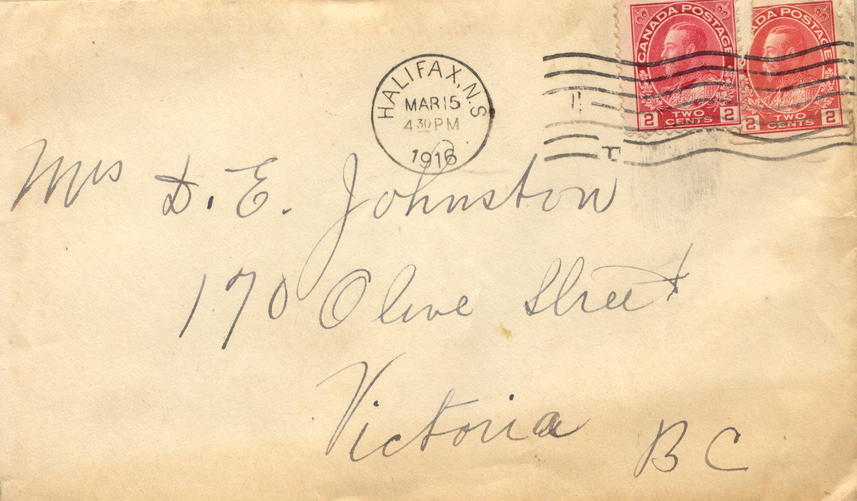 CANADA POSTAGE
2 TWO CENTS 2
CANADA POSTAGE
2 TWO CENTS 2
HALIFAX, N.S
MAR 15
4 30 PM
1916
Mrs D. E. Johnston
170 Olive Street
Victoria
B C